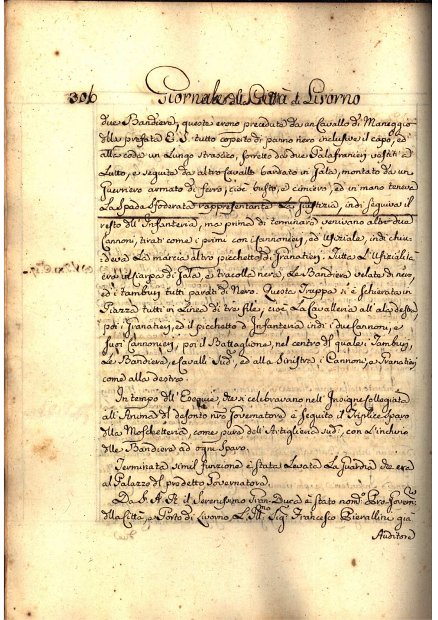 306 Giornale della Città di Livorno
due Bandiere, queste erono precedute da un Cavallo di Maneggio
della prefata E. S. tutto coperto di panno nero inclusive il capo, ed
alla coda un Lungo strascico, sorretto da due Palafranieri vestiti a
Lutto, e seguita da altro Cavallo bardato in Gala, montato da un
Guerriero armato di ferro, cioè busto, e cimiero, ed in mano teneva
La Spada Sfoderata rappresentante La Giustizia, indi seguiva il
resto dell' Infanteria, ma prima di terminare venivano altri due
Cannoni, tirati come i primi con i Cannonieri, ed Ufiziale, indi chiu-
deva La marcia altro picchetto di Granatieri. Tutta L'Ufizialità
era in Sciarpa di Gala, e tracolla nera, Le Bandiere velate di nero,
ed i tamburi tutti parati di Nero. Questa Truppa si è schierata in
Piazza tutti in Linea di tre file, cioè La Cavalleria all' ala destra,
poi i Granatieri, ed il picchetto d' Infanteria indi i due Cannoni, e
suoi Cannonieri, poi il Battaglione, nel centro del quale i Tamburi,
Le Bandiere, e Cavalli Sudd. ed alla Sinistra i Cannoni, e Granatieri
come alla destra.
In tempo dell' Esequie, che si celebravano nell' Insigne Collegiata
all' Anima del defonto nro Governatore è seguito il triplice sparo
della Moschetteria, come pure dell' Artiglieria sudd. con L'inchino
delle Bandiere ad ogni sparo.
Terminata simil funzione è stata Levata La Guardia che era
al Palazzo del predetto Governatore.
Da S. A. R. il Serenissimo Gran-Duca è stato nom. Pro-Govern.
della Città, e Porto di Livorno, L'Ill.mo Sig. Francesco Pierallini già
Auditore